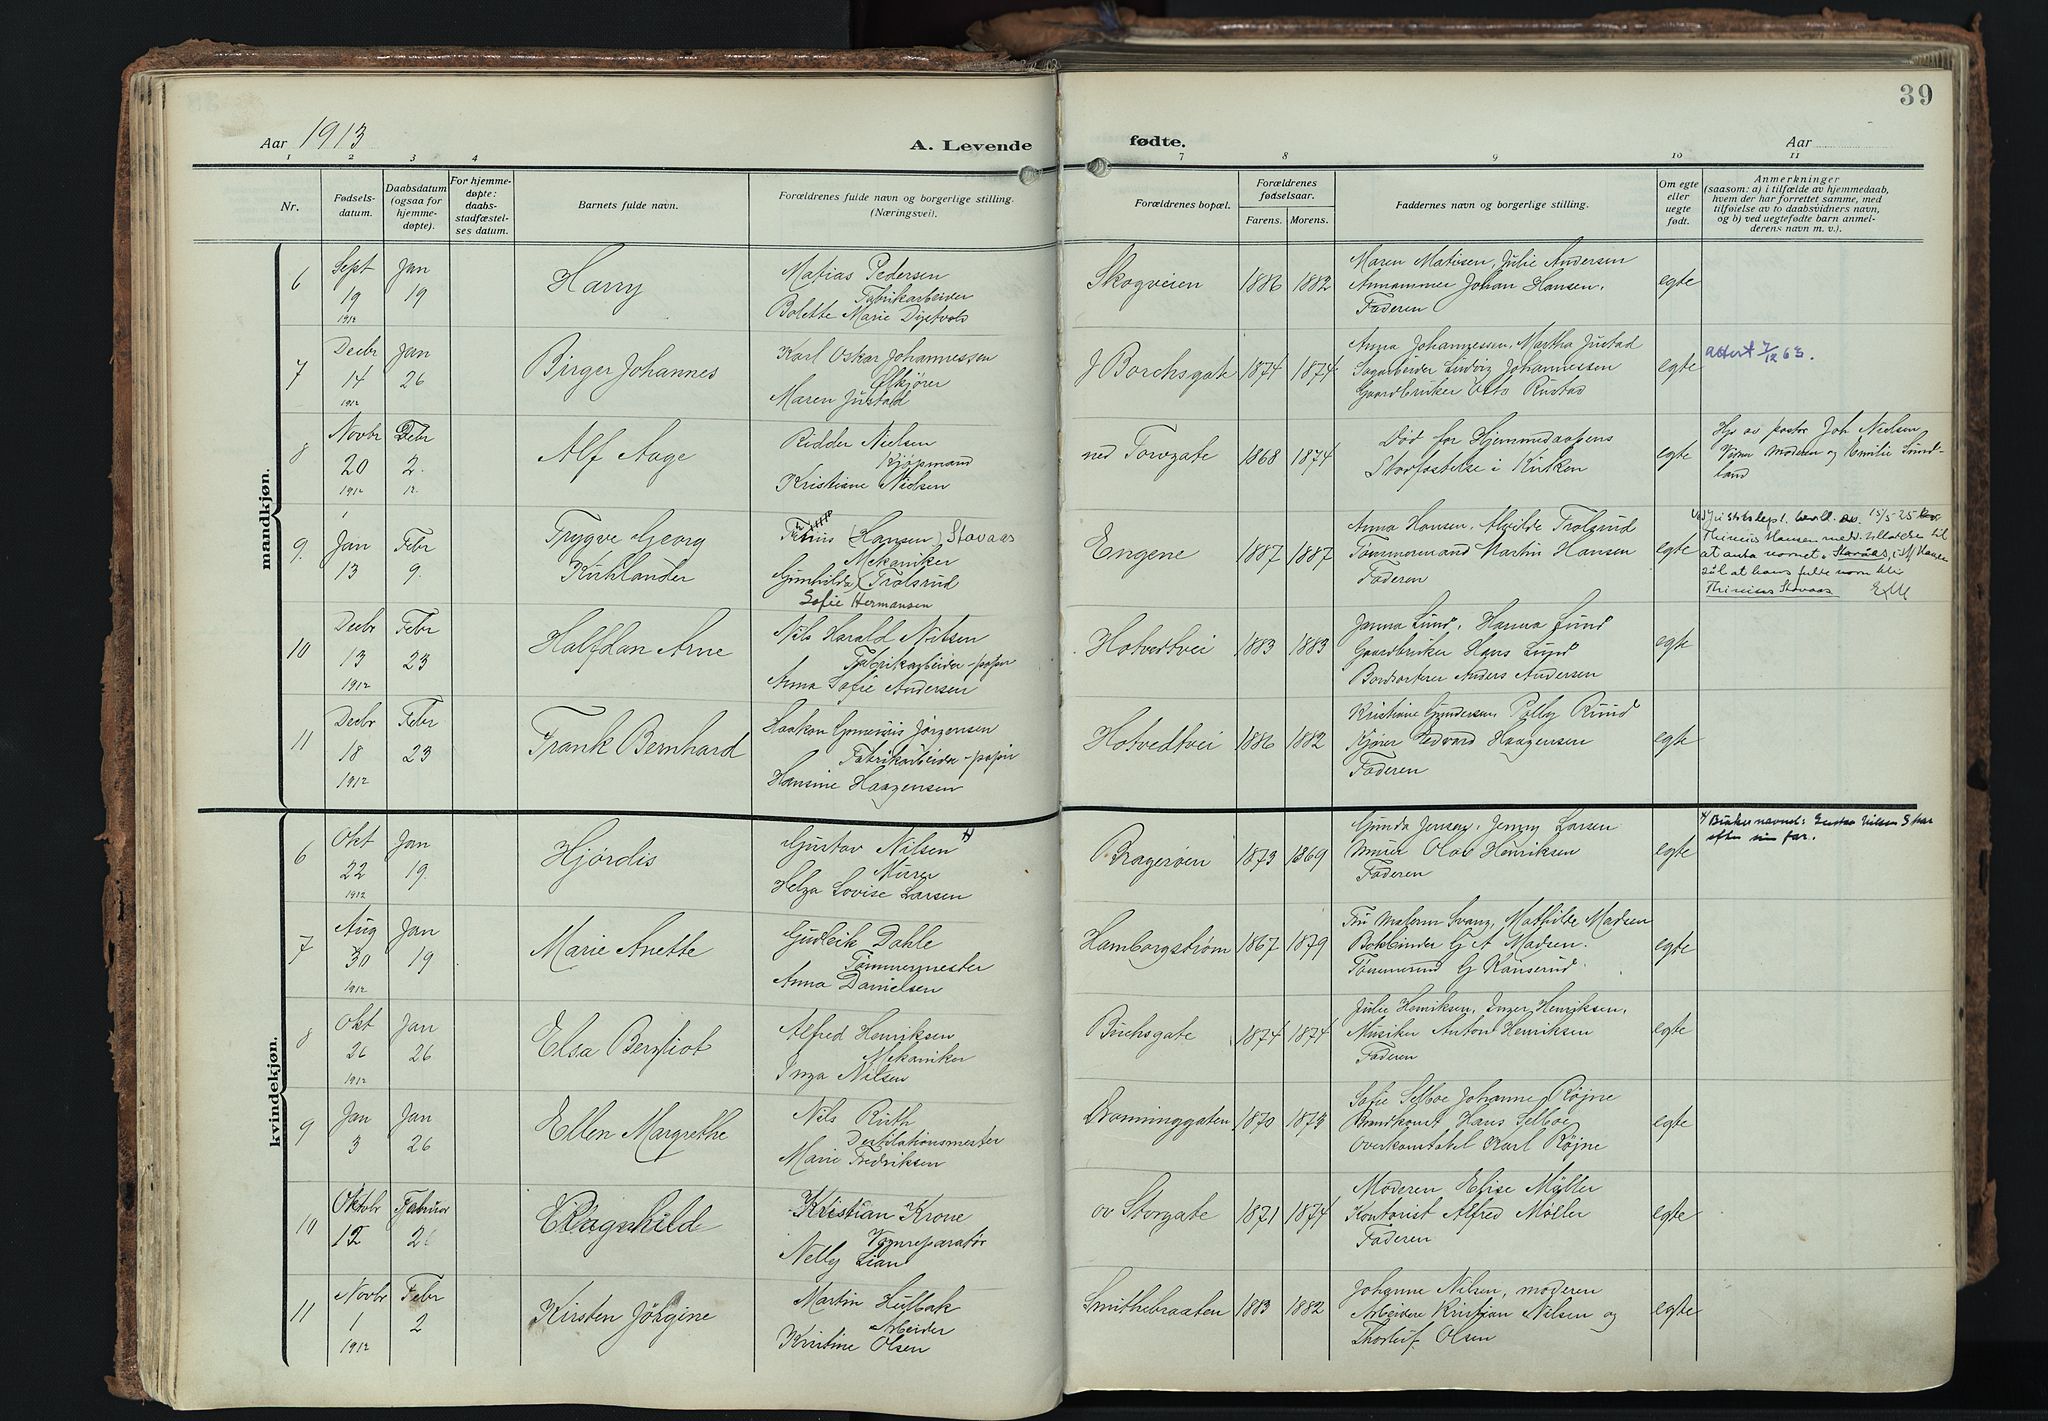 39
Aar 1913
A. Levende fødte.
Aar
1 2 3 4 7 8 9 10 11
Nr.
Fødsels-
datum.
Daabsdatum
(ogsaa for
hjemme-
døpte).
For hjemme-
døpte:
daabs-
stadfæstel-
ses datum.
Barnets fulde navn.
Forældrenes fulde navn og borgerlige stilling.
(Næringsvei).
Forældrenes bopæl.
Forældrenes
fødselsaar.
Farens. Morens.
Faddernes navn og borgerlige stilling.
Om egte
eller
uegte
født.
Anmerkninger
(saasom: a) i tilfælde av hjemmedaab,
hvem der har forrettet samme, med
tilføielse av to daabsvidners navn,
og b) ved uegtefødte barn anmel-
derens navn m. v.).
mandkjøn.
6
Sept
19
1912
Jan
19
Harry
Matias Pedersen
Fabrikarbeider
Bolette Marie
Skogveien
1886 1882
Maren Matisen, Julie Andersen
Johan Hansen.
Faderen
egte
7
Decbr
14
1912
Jan
26
Birger Johannes
Karl Oskar Johannessen
Maren Justad
J Borchsgate
1874 1874
Anna Johannessen, Martha Justad
Sagarbeider Ludvig Johannessen
Gaardbruker Otto Rustad
egte
Attest 7/12 63.
8
Novbr
20
1912
Febr
2
Alf Aage
Ridder Nielsen
Kjøpmand
Kristiane Nielsen
ned Torvgate
1868 1874
Død før Hjemmedaapens
Stadfæstelse i Kirken
egte
Hjd av pastor Joh Nielsen
Moderen og Emilie Lund-
land
9.
Jan
13
Febr
9.
Trygve Georg
(Hansen) Stavaas
Mekaniker
Gunhilda (Trolsrud
Sofie Hermansen
Engene
1887 1887
Anna Hansen, Alvilde Trolsrud
Tømmermand Martin Hansen
Faderen
egte
10
Decbr
13
1912
Febr
23
Halfdan Arne
Nils Harald Nilsen
Fabrikarbeider - papir
Anna Sofie Andersen
Hotvedtvei
1883 1883
Janna Lund, Hanna Lund
Gaardbruker Hans Lund
Anders Andersen
egte
11
Decbr
18
1912
Febr
23
Frank Bernhard
Haakon Jørgensen
Fabrikarbeider - papir
Hansine Haagensen
Hotvedtvei
1886 1882
Kristiane Gundersen, Ruud
Kjører Edvard Haagensen
Faderen
egte
kvindekjøn.
6
Okt
22
1912
Jan
19.
Hjørdis
Gustav Nilsen
Murer
Helga Lovise Larsen
Bragerøen
1873 1869
Gunda Jensen, Jenny Larsen
Murer Olav Henriksen
Faderen
egte
efter sin far.
7
Aug
30
1912
Jan
19
Marie Anette
Gudleik Dahle
Tømmermester
Anna Danielsen
Hamborgstrøm
1867 1879
Mathilde Madsen
Bokbinder G A Madsen.
egte
8
Okt
26
1912
Jan
26
Elsa Bergliot
Alfred Henriksen
Mekaniker
Inga Nilsen
1874 1874
Julie Henriksen, Inger Henriksen,
Musiker Anton Henriksen
Faderen
egte
9
Jan
3
Jan
26
Ellen Margrethe
Nils Ruth
Destilationsmester
Marie Fredriksen
Dronninggaten
1870 1873
Sofie Selboe Johanne Røjne
Hans Selboe
Overkonstabel Karl Røjne
egte
10
Oktobr
12
Februar
2
Ragnhild
Kristian Krone
Nelly Lian
ov Storgate
1871 1874
Moderen Elise Møller
Kontorist Alfred Møller
Faderen
egte
11
Novbr
1
1912
Febr
2
Kirsten Jørgine
Martin Hulbak
Arbeider
Kristine Olsen
Smithebraaten
1883 1882
Johanne Nilsen, moderen
Arbeidere Kristian Nilsen og
Thorleif Olsen
egte